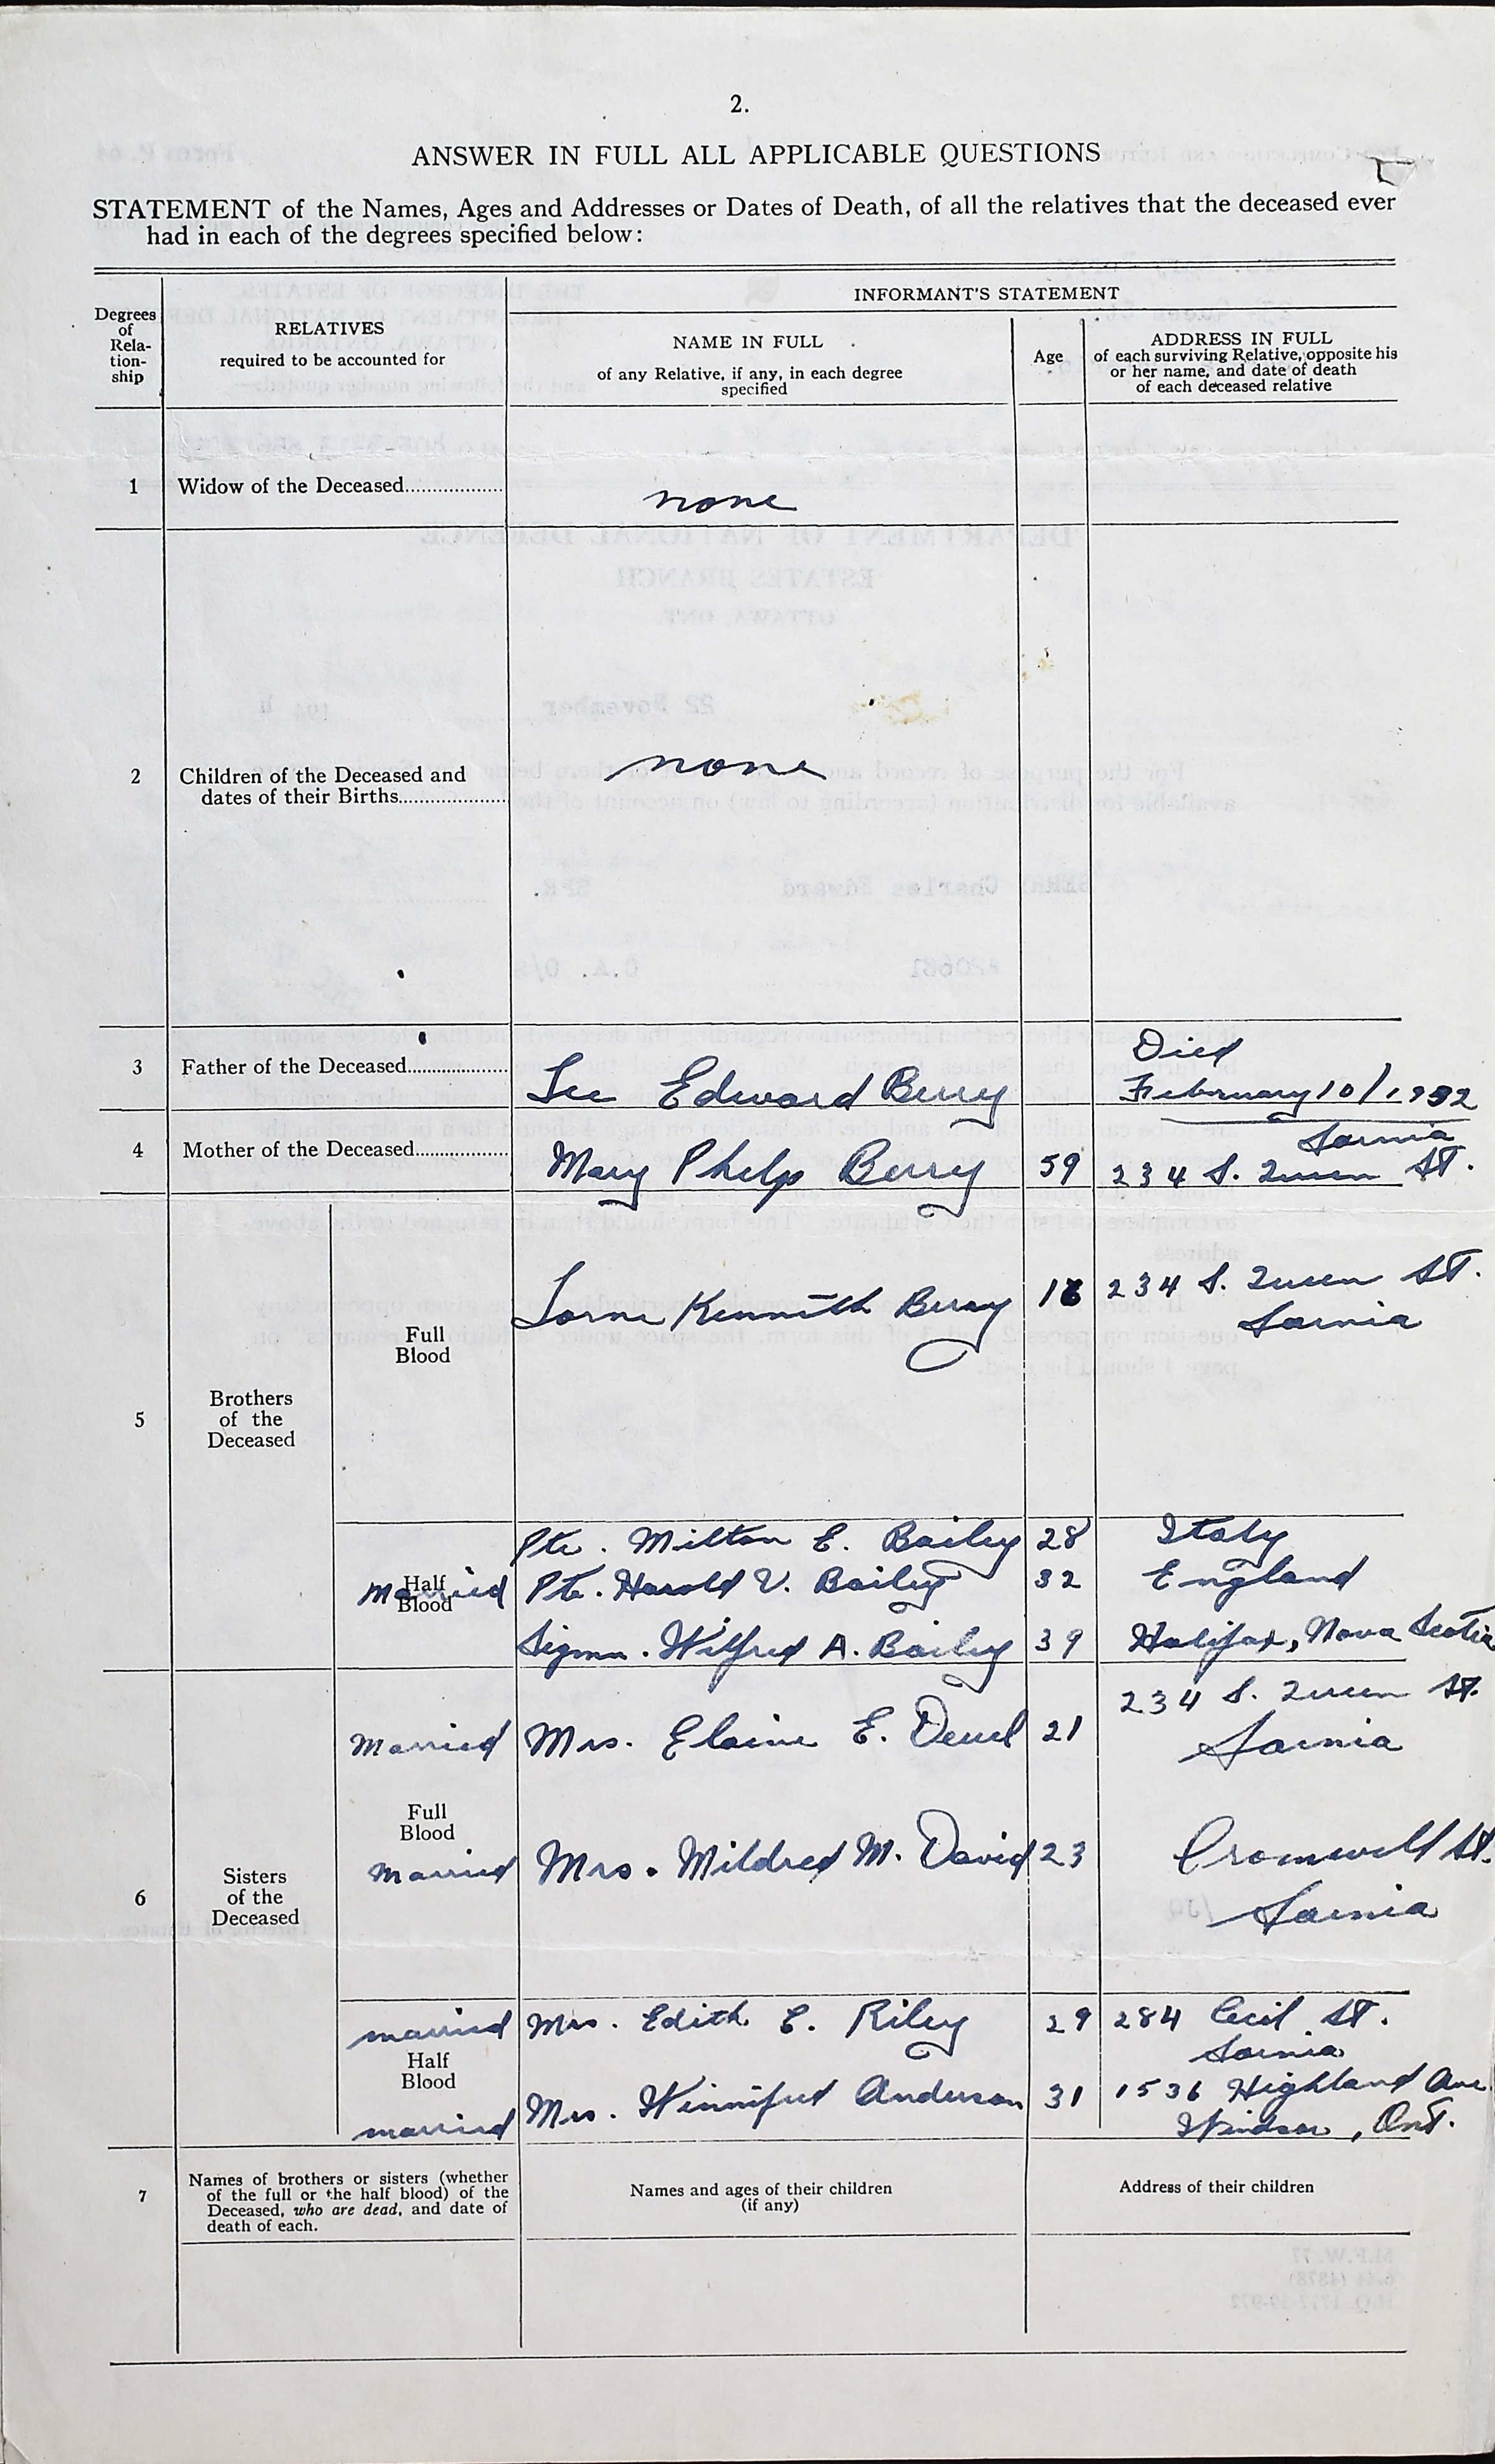 2.
ANSWER IN FULL ALL APPLICABLE QUESTIONS
STATEMENT of the Names, Ages and Addresses or Dates of Death, of all the relatives that the deceased ever
had in each of the degrees specified below:
Degrees
of
Rela-
tion-
ship
RELATIVES
required to be accounted for
INFORMANT'S STATEMENT
NAME IN FULL
of any Relative, if any, in each degree
specified
Age
ADDRESS IN FULL
of each surviving Relative, opposite his
or her name, and date of death
of each deceased relative
1 Widow of the Deceased..................
none
2 Children of the Deceased and
dates of their Births....................
none
3 Father of the Deceased...................
Lee Edward Berry
Died
February 10/1932
4 Mother of the Deceased.................
Mary Phelps Berry 59 234 S. Queen St.
Sarnia
5 Brothers
of the
Deceased
Full
Blood
Lorne Kenneth Berry 234 S. Queen St.
Sarnia
Half
Blood
Pte. Milton E. Bailey 28 Italy
Married Pte. Harold V. Bailey 32 England
Sigmn. Wilfred A. Bailey 39 Halifax, Nova Scotia
6 Sisters
of the
Deceased
Full
Blood
Married Mrs. Elaine E. 21 234 S. Queen St.
Sarnia
Married Mrs. Mildred M. David 23 Cromwell St.
Sarnia
Half
Blood
married Mrs. Edith E. Riley 29 284 Cecil St.
Sarnia
married Mrs. Winnifred Anderson 31 1536 Highland Ave
Windsor, Ont.
7 Names of brothers or sisters (whether
of the full or the half blood) of the
Deceased, who are dead, and date of
death of each.
Names and ages of their children
(if any)
Address of their children